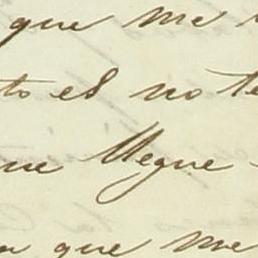 que me
to es no te
que llegue
que me